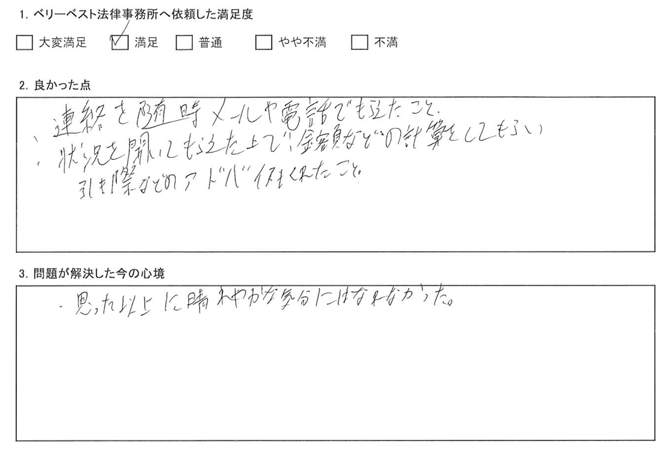 1. ベリーベスト法律事務所へ依頼した満足度
大変満足 満足 普通 やや不満 不満
2. 良かった点
・連絡を随時メールや電話でもらえたこと、
・状況を聞いてもらえた上で、金額などの計算をしてもらい
引き際などのアドバイスをくれたこと。
3. 問題が解決した今の心境
・思った以上に晴れやかな気分にはなれなかった。